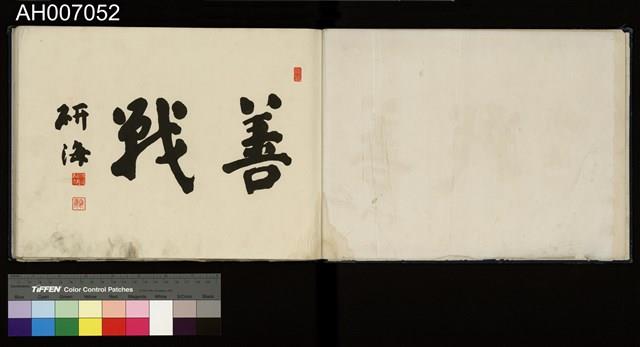 AH007052
善戰
研海
TIFFEN Color Control Patches
Blue Cyan Green Yellow Red Magenta White 3/Color Black